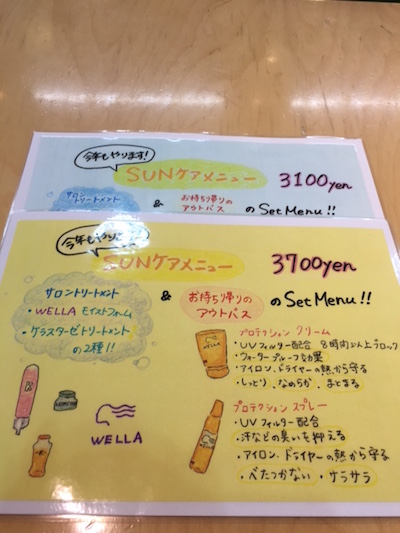 今年もやります!
SUNケアメニュー
3100yen
サロン
トリートメント
&
お持ち帰りの
アウトバス
のSet Menu!!
今年もやり
SUNケアメニュー
3700yen
サロントリートメント
・WELLA モイストフォーム
・ケラスターゼトリートメント
の2種!!
&
お持ち帰りの
アウトバス
のSet Menu!!
プロテクション クリーム
・UVフィルター配合 8時間以上ブロック
・ウォータープルーフ効果
・アイロン、ドライヤーの熱から守る
・しっとり、なめらか、まとまる
プロテクション スプレー
・UVフィルター配合
・汗などの臭いを抑える
・アイロン、ドライヤーの熱から守る
・べたつかない ・サラサラ
WELLA